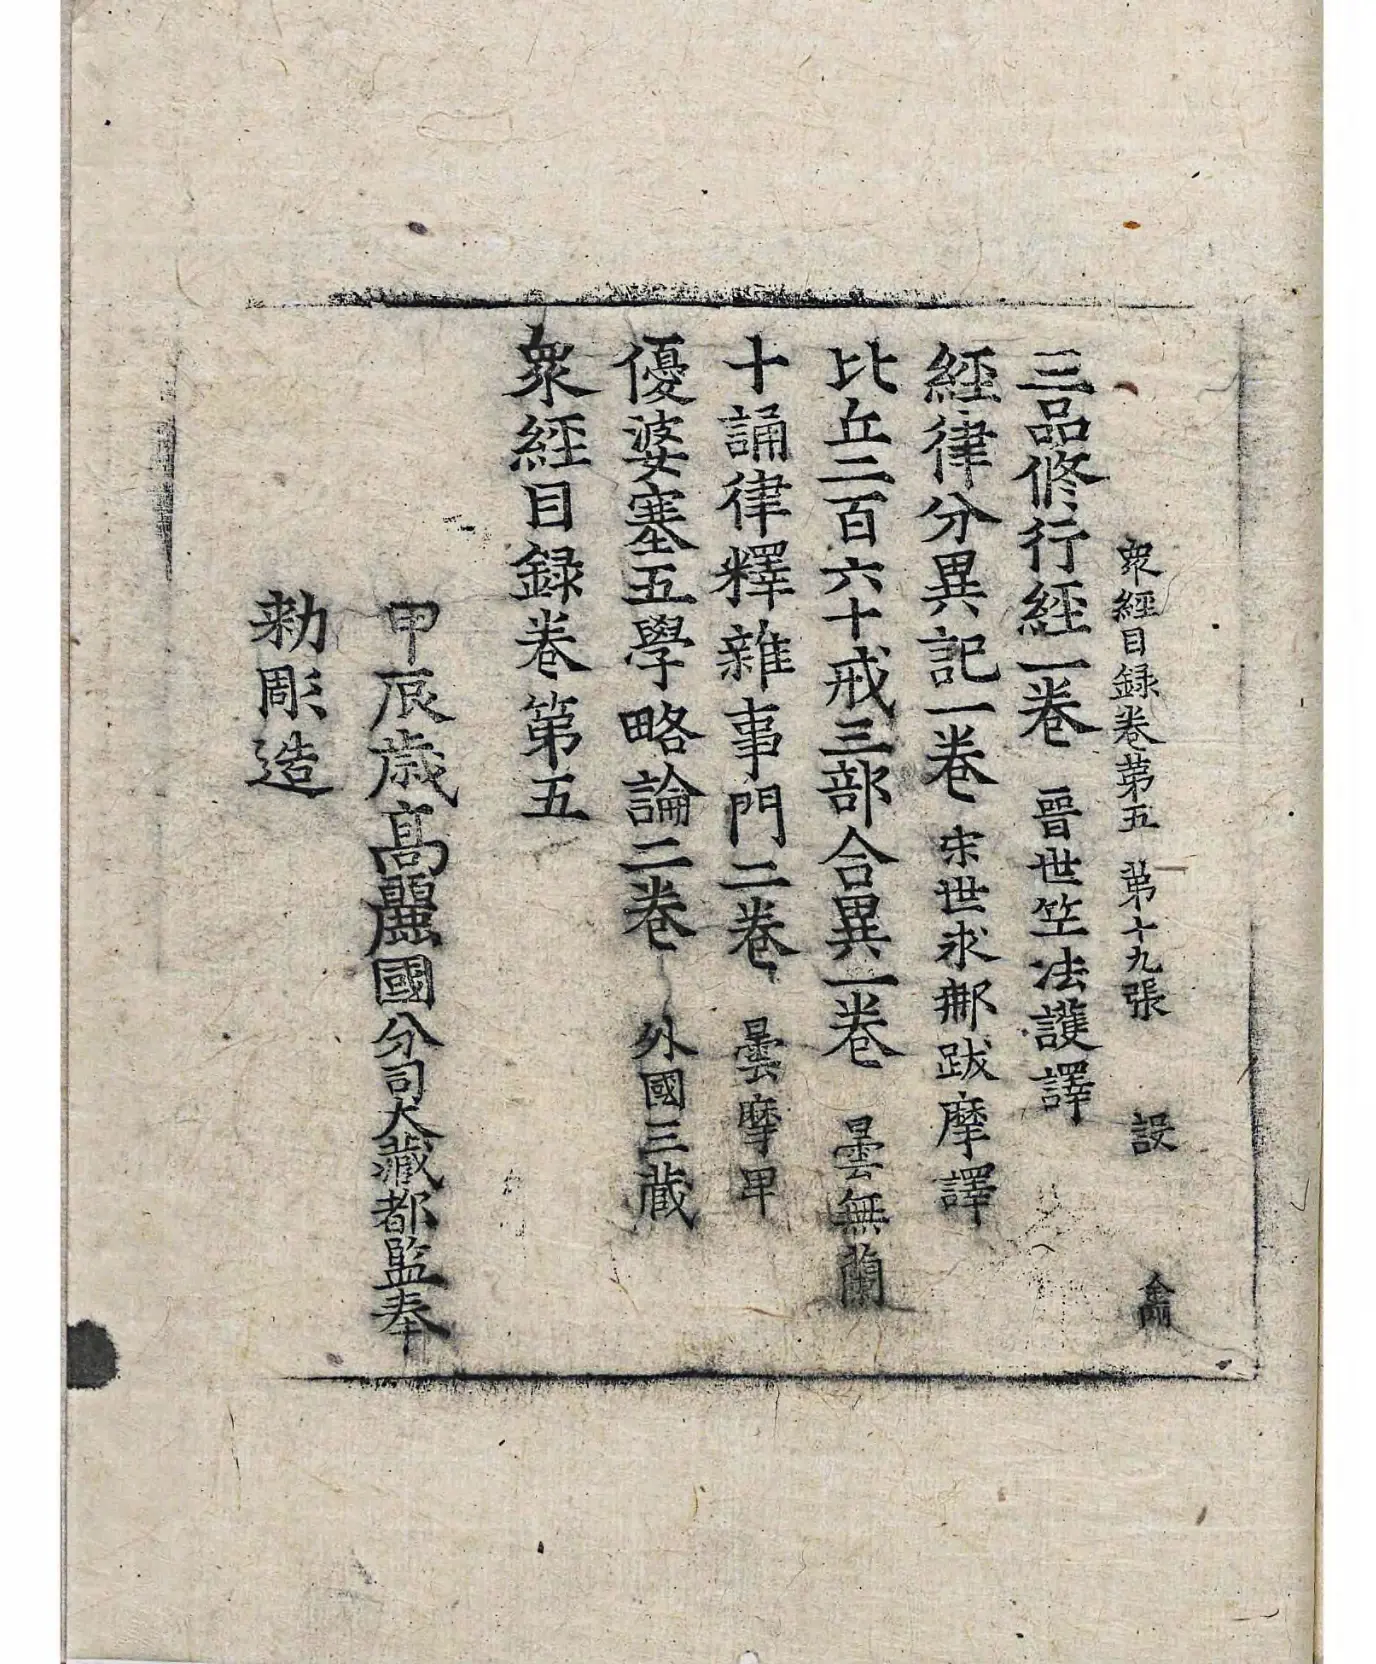 衆經目録卷第五 第十九張 設
三品修行經一卷 晉世竺法護譯
經律分異記一卷 宋世求那跋摩譯
比丘二百六十戒三部合異一卷 曇無蘭
十誦律釋雜事門二卷 曇摩卑
優婆塞五學略論二卷 外國三藏
衆經目録卷第五
甲辰歳高麗國分司大藏都監奉
勑彫造